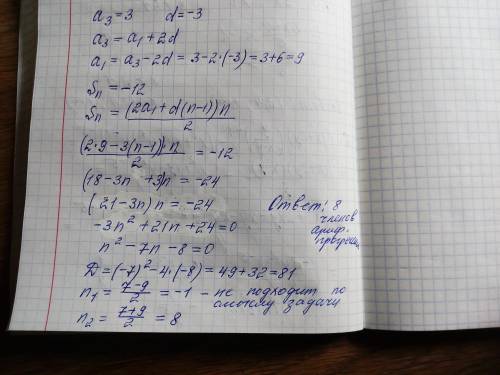 a₃ = 3 d = -3
a₃ = a₁ + 2d
a₁ = a₃ - 2d = 3 - 2·(-3) = 3+6 = 9
Sₙ = -12
Sₙ = (2a₁ + d(n-1))n / 2
(2·9 - 3(n-1))·n / 2 = -12
(18 - 3n + 3)n = -24
(21 - 3n) n = -24
-3n² + 21n + 24 = 0
n² - 7n - 8 = 0
D = (-7)² - 4·(-8) = 49 + 32 = 81
n₁ = (7-9)/2 = -1 - не подходит по
смыслу задачи
n₂ = (7+9)/2 = 8
Ответ: 8
членов
ариф.